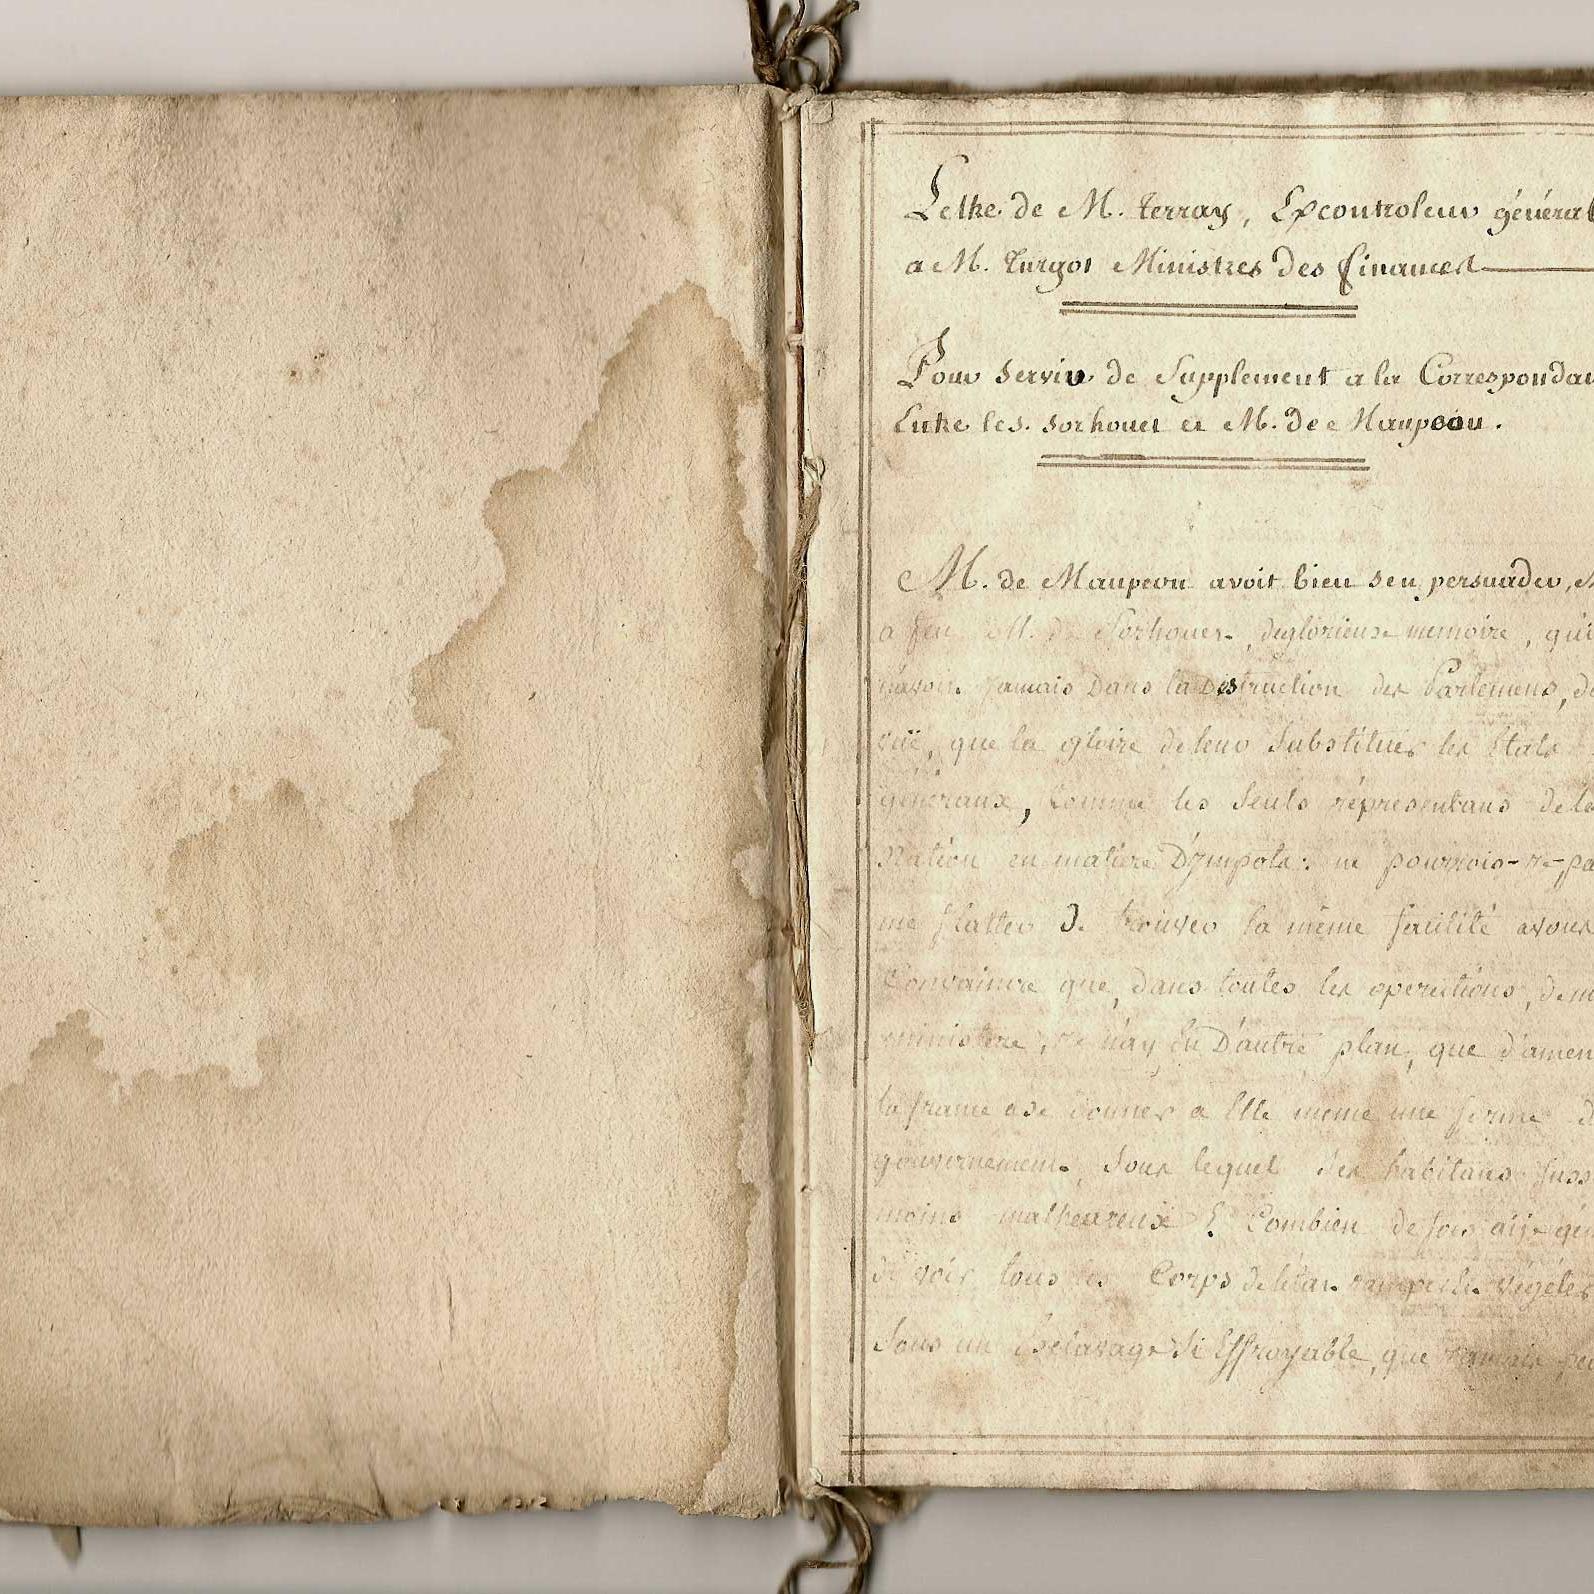 Lettre de M. Terray, Excontroleur général
a M. Turgot Ministres des finances
Pour servir de Supplement a la Correspondan
Entre les. Sorhouet et M. de Maupeou.
M. de Maupeou avoit bien seu persuader, M
a feu M. de Sorhouet, de glorieuse memoire, qu'i
n'avoit jamais Dans la Destruction des Parlemens, de
vuë, que la gloire de leur Substituer les Etats
généraux, Comme les seuls réprésentans de la
Nation en matiere D'ympots: ne pourrois-je-pa
me flatter De trouver la même facilité avous
Convaincre que, dans toutes les operations, dem
ministere, je n'ay Eu D'autre plan, que d'amen
la france ase donner a Elle même une forme d
gouvernement, Sous lequel Ses habitans fuss
moins malheureux? Combien de fois ai-je gém
de voir tous les Corps de l'état ramper et végéter
Sous un Esclavage Si Effroyable, que jamais peu